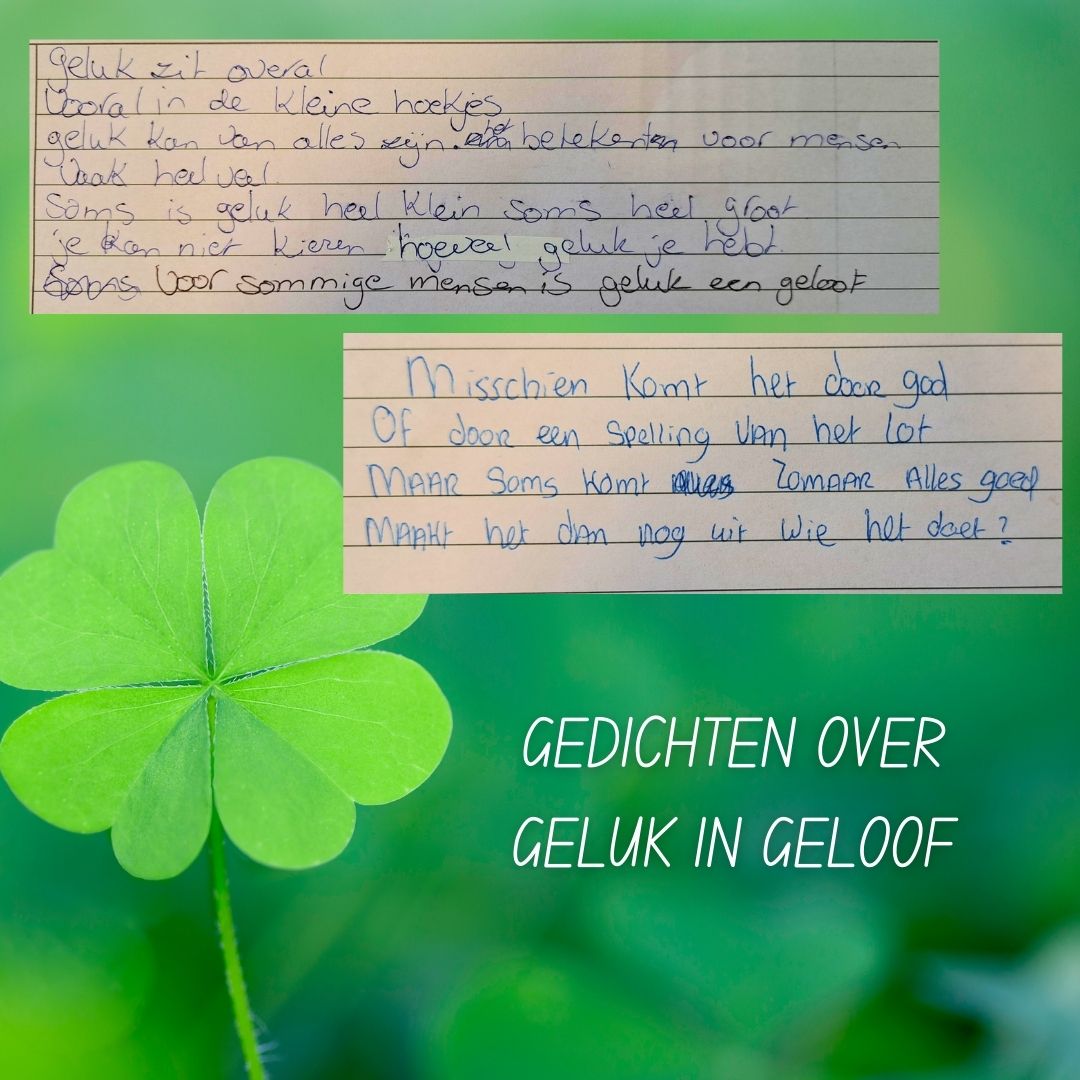 geluk zit overal
Vooral in de kleine hoekjes
geluk kan van alles zijn. het betekent voor mensen
Vaak heel veel.
Soms is geluk heel klein soms heel groot
je kan niet kiezen hoeveel geluk je hebt.
Soms Voor sommige mensen is geluk een geloof
Misschien komt het door god
Of door een Spelling van het lot
MAAR Soms komt ZOMAAR Alles goed
MAAKt het dan nog uit wie het doet?
GEDICHTEN OVER
GELUK IN GELOOF